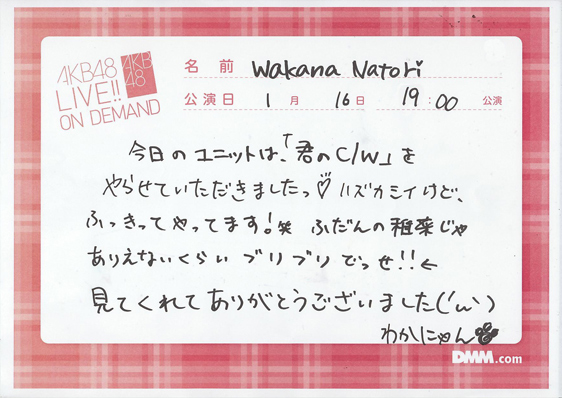 AKB48
LIVE!!
ON DEMAND
AKB
48
名前 Wakana Natori
公演日 1月 16日 19:00 公演
今日のユニットは、「君のC/W」を
やらせていただきましたっ♡ハズカシイけど、
ふっきってやってます!笑 ふだんの稚菜じゃ
ありえないくらい ブリブリ でっせ!!←
見てくれてありがとうございました('ω')
わかにゃん
DMM.com